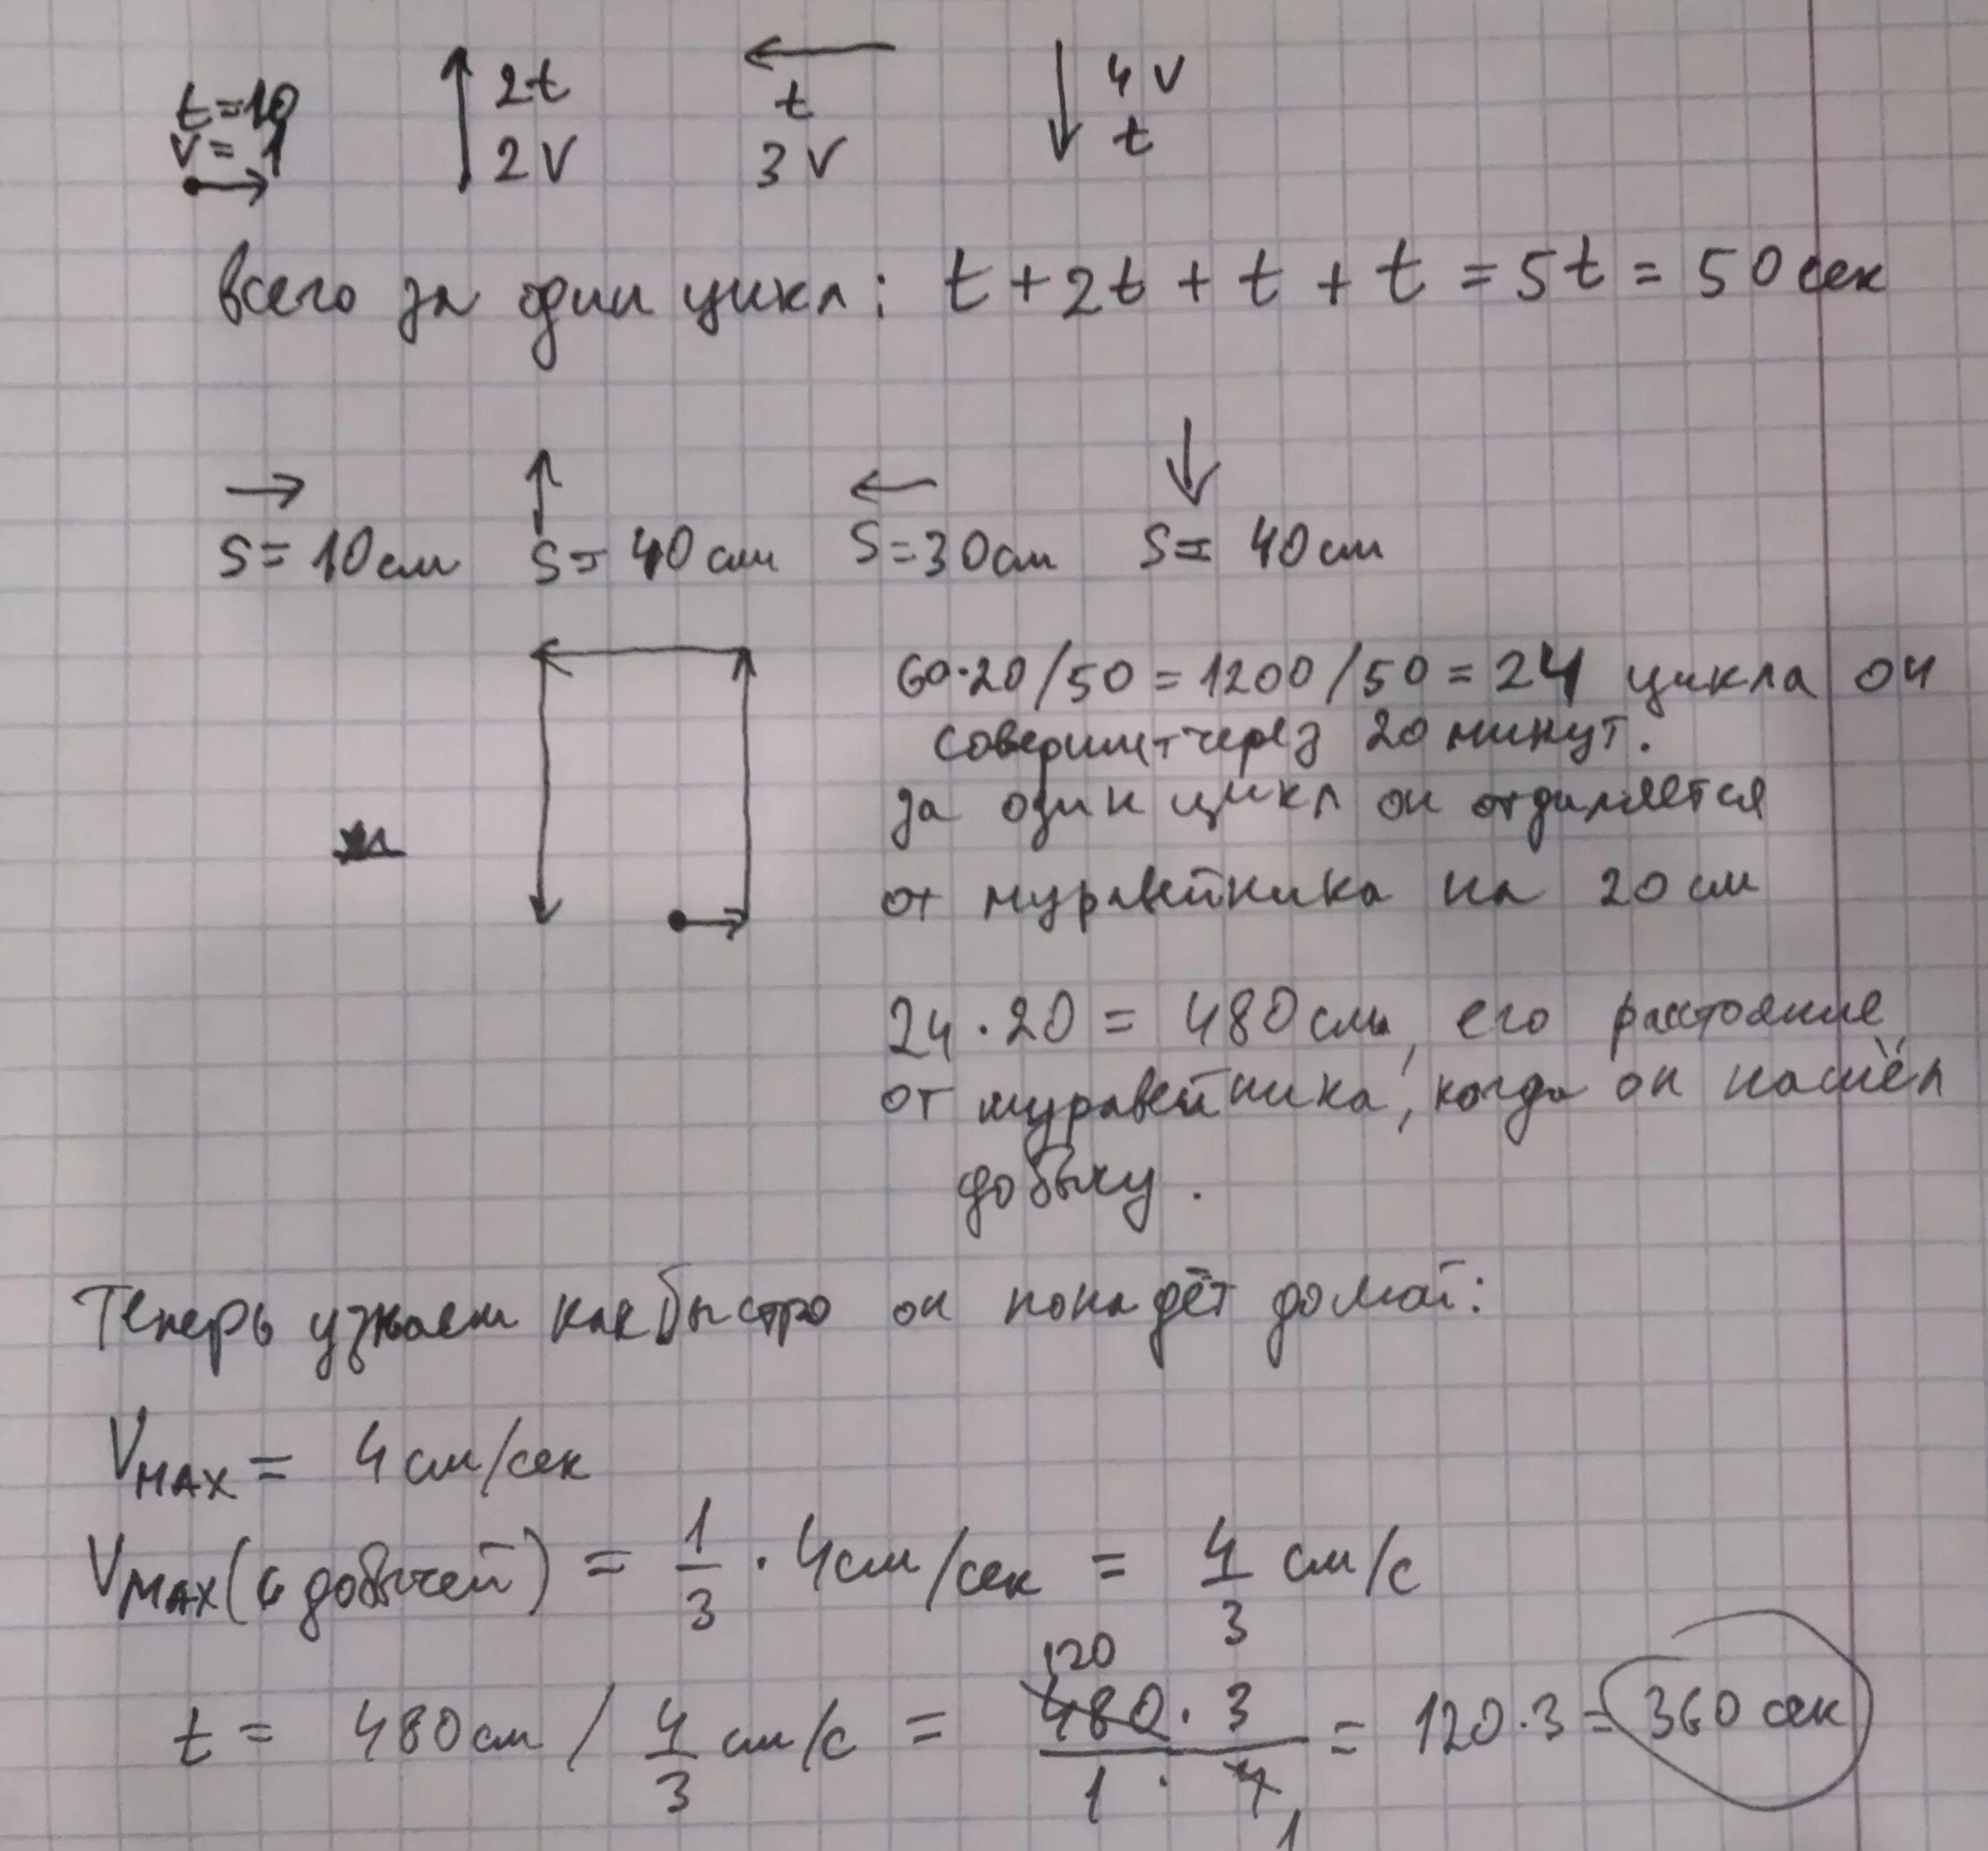 t=10
v=1
2t
2V
t
3V
4V
t
всего за один цикл: t + 2t + t + t = 5t = 50 сек
S = 10 см S = 40 см S = 30 см S = 40 см
60·20/50 = 1200/50 = 24 цикла он
совершит через 20 минут.
за один цикл он отдаляется
от муравейника на 20 см
24·20 = 480 см, его расстояние
от муравейника, когда он нашёл
добычу.
Теперь узнаем как быстро он попадёт домой:
Vмах = 4 см/сек
Vмах(с добычей) = 1/3 · 4 см/сек = 4/3 см/с
t = 480 см / 4/3 см/с = 120 480·3 / 1·4 1 = 120·3 = 360 сек